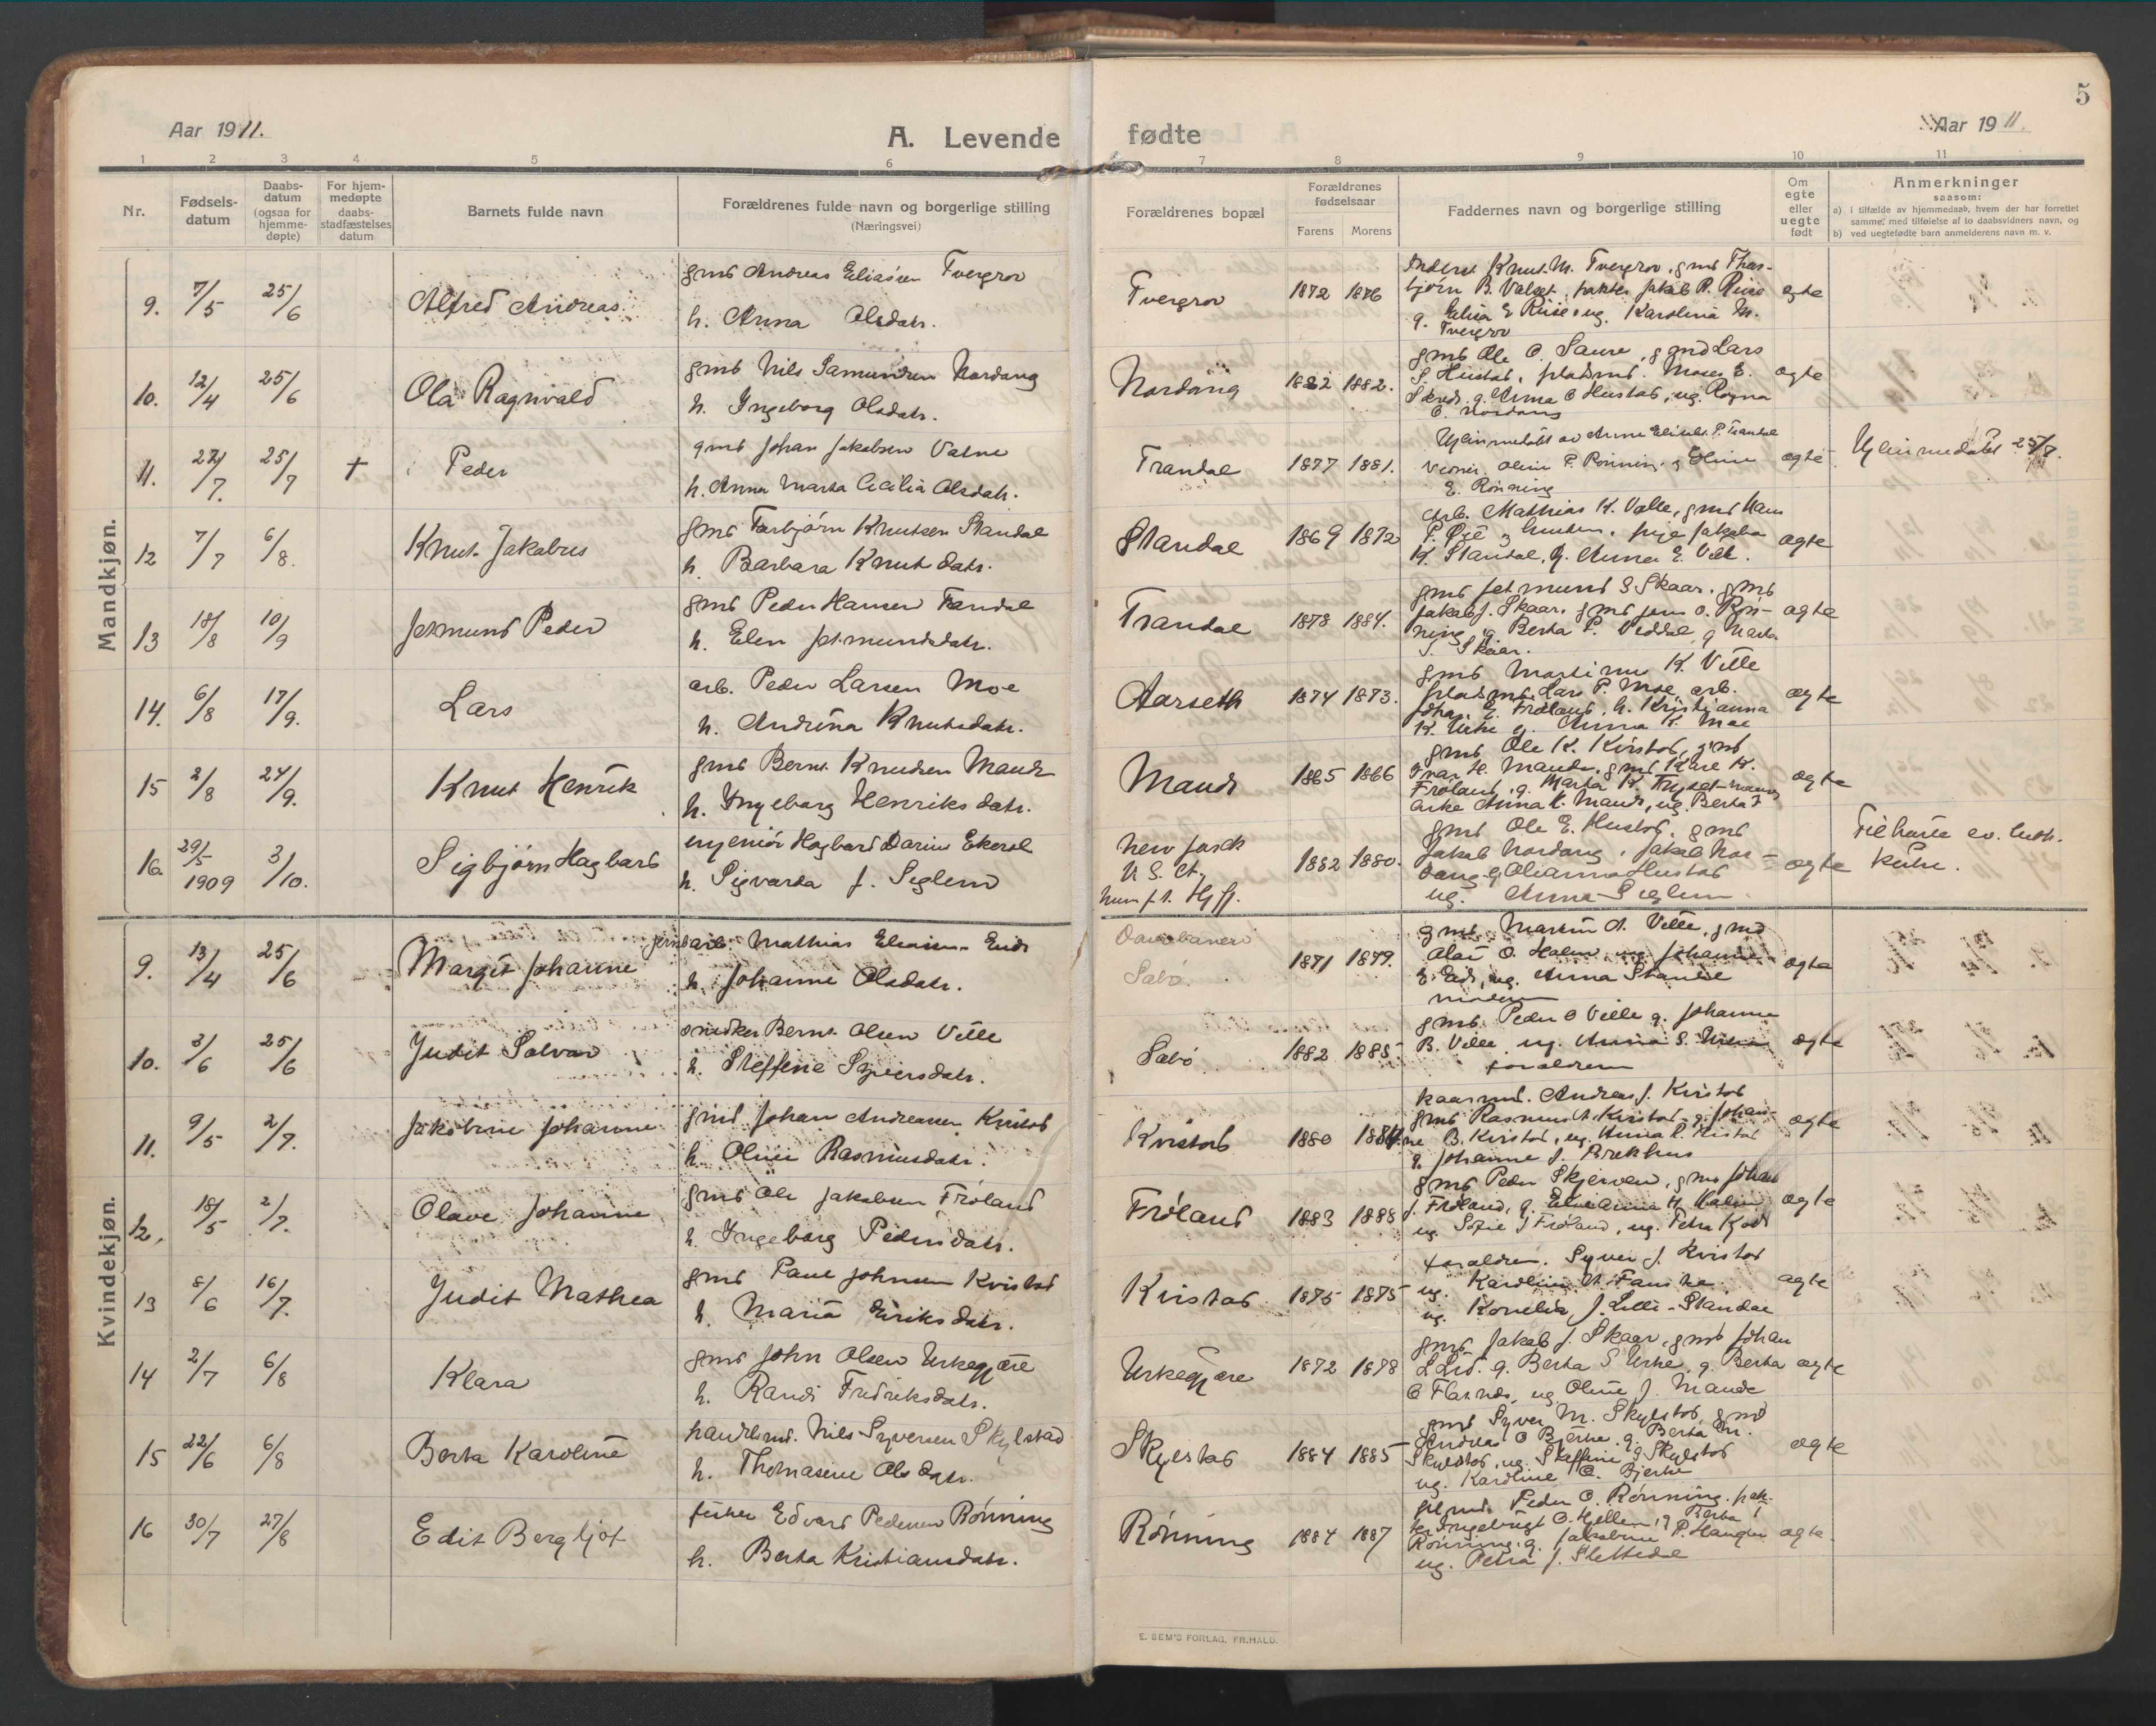 5
Aar 1911.
A. Levende
fødte
Aar 1911.
1 2 3 4 5 6 7 8 9 10 11
Nr.
Fødsels-
datum
Daabs-
datum
(ogsaa for
hjemme-
døpte)
For hjem-
medøpte
daabs-
stadfæstelses
datum
Barnets fulde navn
Forældrenes fulde navn og borgerlige stilling
(Næringsvei)
Forældrenes bopæl
Forældrenes
fødselsaar
Farens Morens
Faddernes navn og borgerlige stilling
Om
egte
eller
uegte
født
Anmerkninger
saasom:
a) i tilfælde av hjemmedaab, hvem der har forrettet
samme, med tilføielse af to daabsvidners navn, og
b) ved uegtefødte barn anmelderens navn m. v.
Mandkjøn.
9. 7/5 25/6 Alfred Andreas
gmd Andreas Eliassen Tvergrov
h. Anna Olsdatr.
Tvergrov 1872 1876
Knut M. Tvergrov, gmd Thor-
bjørn B. Jakob P. Riise
Karolina M.
Tvergrov
egte
10. 12/4 25/6 Ola Ragnvald
gmb Nils Samundsen Nordang
h. Ingeborg Olsdatr.
Nordang 1882 1882.
gmb Ole O. Saure, gmd Lars
S. Hustad, pladsmd. Moses E.
g. Anna O Hustad, ug. Ragna
E. Nordang
egte
11. 27/7. 25/7 + Peder
gmb Johan Jakobsen Vatne
h. Anna Marta Cecilia Olsdatr.
Trandal 1877 1881.
Hjemmedøbt av Anne P. Trandal
Oline P. Rønning, g Eline
E. Rønning
egte
Hjemmedøbt 25/7.
12 7/7 6/8. Knut Jakobus
gmb Torbjørn Knutsen Standal
h. Barbara Knutsdatr.
Standal 1869 1872
arb. Mathias K. Valle, gmd Hans
P. Øie g hustru, pige Jakoba
K. Standal, g. Anna E. Valle.
egte
13 18/8 10/9 Jetmund Peder
gmb Peder Hansen Trandal
h. Elen Jetmundsdatr.
Trandal 1878 1884.
gmb Jetmund S Skaar, gmb
Jakob J. Skaar, gmd Jens O. Røn-
ning, g Berta P. Viddal, g Marta
J. Skaar.
egte
14. 6/8 17/9. Lars
arb. Peder Larsen Moe
h. Andrina Knutsdatr.
Aarseth 1874 1873.
gmb Martinus K. Velle
pladsmd. Lars P. Moe, arb.
Johan E. Frøland, h. Kristianna
K. Urke g. Anna K. Moe
egte
15 2/8 24/9. Knut Henrik
gmb Bernt Knudsen Maudr
h. Ingeborg Henriksdatr.
Maudr 1865 1866
gmb Ole K. Kvistad, gmd
Ivar H. Maudr, gmd Kare K.
Frøland, g. Marta K.
Anna K. Maudr, ug. Berta
egte
16 29/5 1909 3/10. Sigbjørn Hagbard
ingeniør Hagbard Darius Ekerol
h. Sigvarda f. Seglem
New York
U. S. A.
1882 1880.
gmb Ole E. Hustad, gmd
Jakob Nordang, Jakob Nor-
dang, g Olianna Hustad
ug. Anna Seglem
egte
Tilhører ev. luth.
kirke.
Kvindekjøn.
9. 13/4 25/6 Margit Johanne
arb. Mathias Eliassen Eidr
h. Johanne Olsdatr.
Sæbø. 1871 1879.
gmb. Martin A. Velle, gmd
Olai O. Holen, ug. Johanne
E. Eidr, ug. Anna Standal
moderen
egte
10. 3/6 25/6 Judit Solvor
snedker Bernt Olsen Velle
h. Steffine Syversdatr.
Sæbø 1882 1885.
gmb. Peder O Velle g. Johanne
B. Velle, ug. Anna S.
forældrene
egte
11. 9/5 2/7. Jakobine Johanne
gmd Johan Andreassen Kvistad
h. Oline Rasmusdatr.
Kvistad 1880 1884
kaarmd. Andreas J. Kvistad
gmb Rasmus A. Kvistad, g. Johan-
ne B. Kvistad, ug. Anna R. Kvistad
g. Johanne J. Brekhus
egte
12. 18/5 2/7. Olave Johanne
gmd Ole Jakobsen Frøland
h. Ingeborg Pedersdatr.
Frøland 1883 1888
gmb Peder Skjerven, gmd Johan
J. Frøland, g. Elianna H Holen
ug. Sofie J Frøland, ug. Petra
egte
13 8/6 16/7. Judit Mathea
gmd Paul Johnsen Kvistad
h. Maria Eriksdatr.
Kvistad 1875 1875
forældrene. Syver J. Kvistad
ug. Karoline A.
ug. Kornelia J. Standal
egte
14 2/7 6/8 Klara
gmd John Olsen Urkegjære
h. Randi Fredriksdatr.
Urkegjære 1872 1878
gmd Jakob J. Skaar, gmb Johan
g. Berta S Urke, g. Berta
O Flasnes, ug Oline J. Maude
egte
15 22/6 6/8 Berta Karoline
handlsmd. Nils Syversen Skylstad
h. Thomasine Olsdatr.
Skylstad 1884 1885
gmb Syver M. Skylstad, gmd
Andreas O Bjerke, g. Berta M.
Skylstad, ug. Steffine G Skylstad
ug. Karoline O. Bjerke
egte
16 30/7 27/8 Edit Bergljot
fisker Edvard Pedersen Rønning
h. Berta Kristiansdatr.
Rønning 1884 1887
Peder O. Rønning,
Ingebrigt O. Hjellen, g Berta
Rønning, g. Jakobine P. Haugen
ug. Petra J. Slettedal
egte.
E. SEM'S FORLAG, FR.HALD.